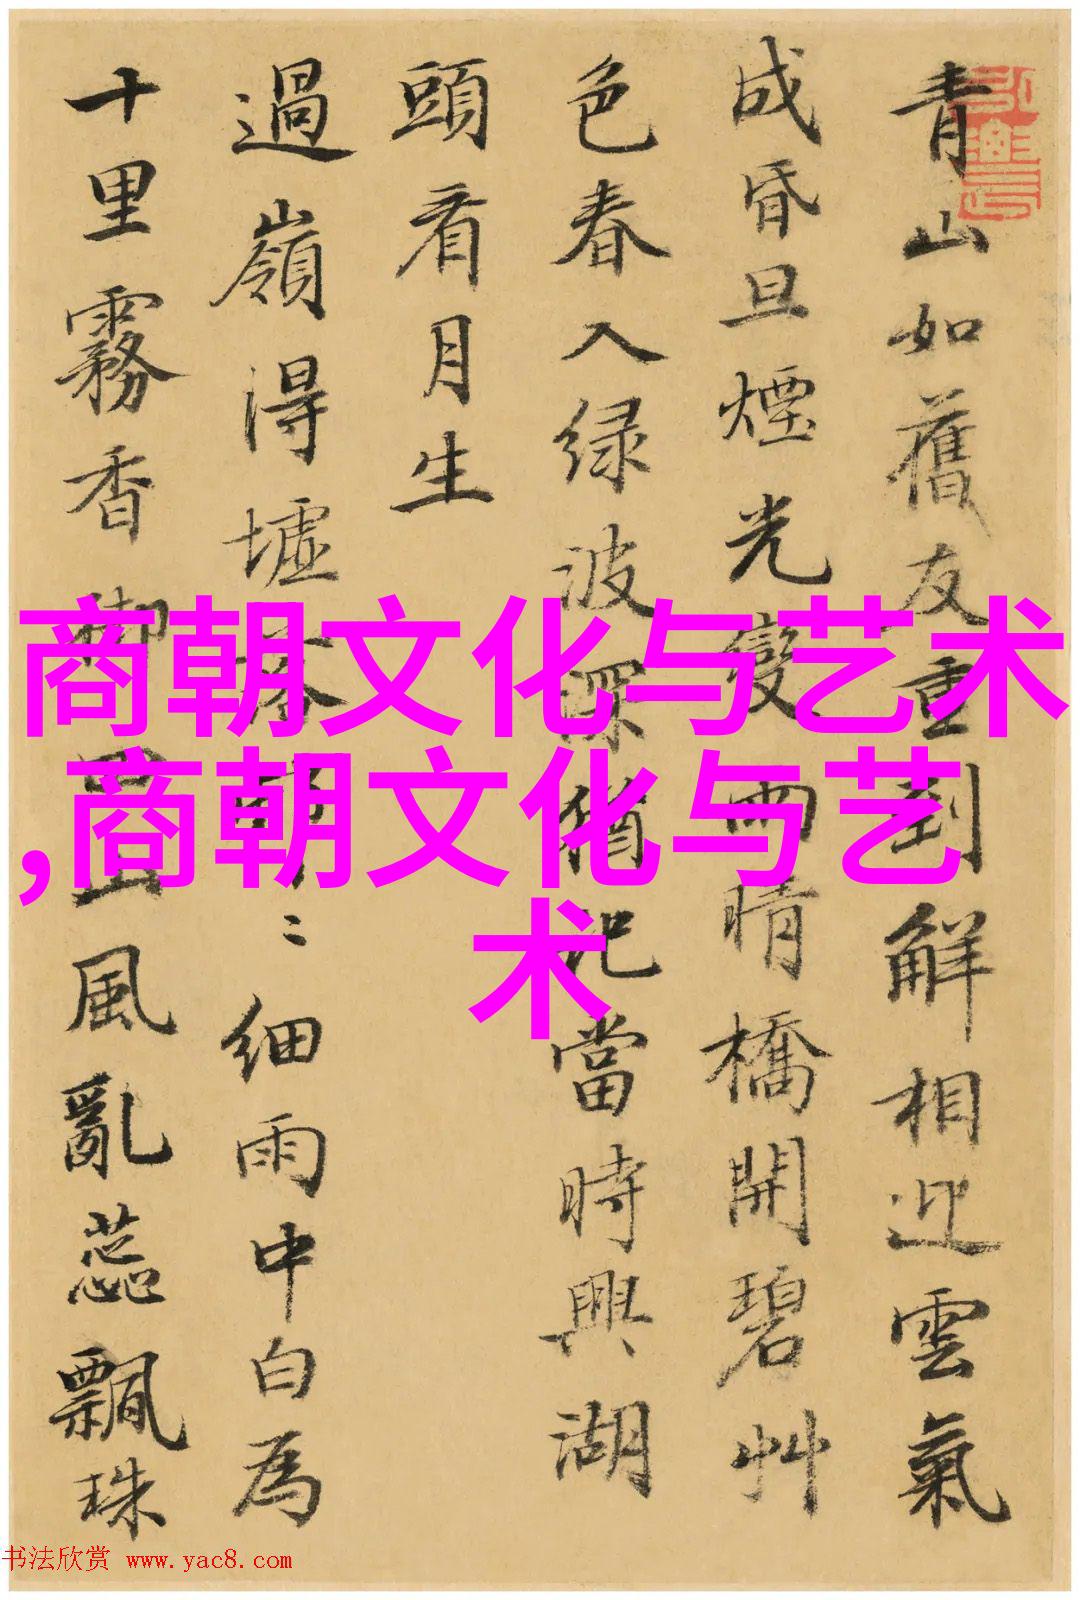 青山如舊友重到解相迎雲氣
成昏旦煙光變雨晴橋開碧艸
色春入緑波深猶記當時興湖
頭看月生
過嶺得墟細雨中白為
十里霧香山風亂蕊飄珠
商朝文化与艺术
,商朝文化与艺
术
书法欣赏 www.yac8.com